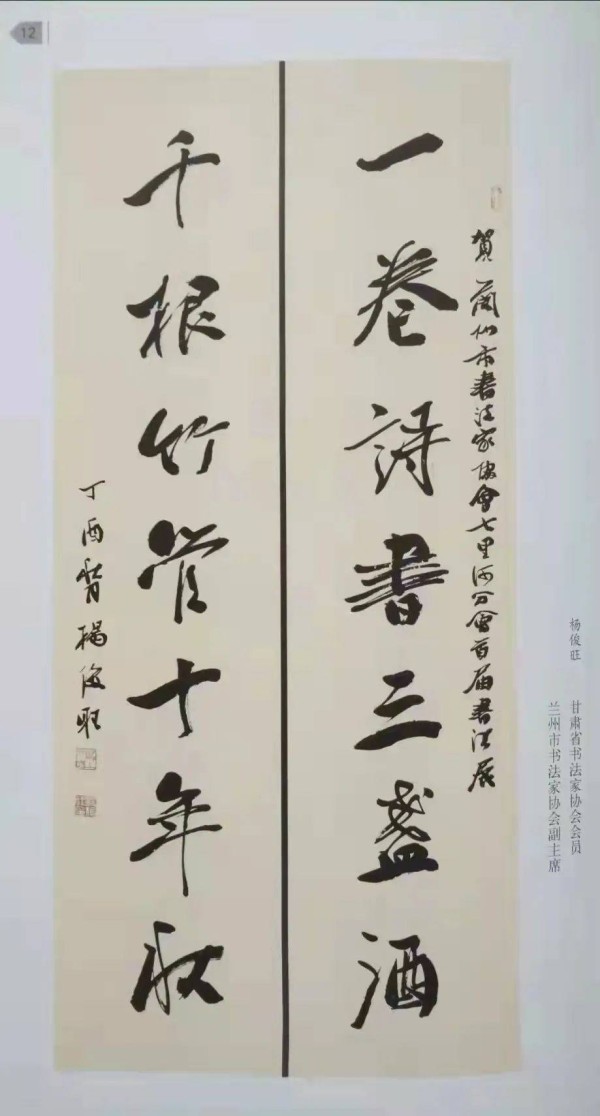 12
賀蘭州市書法家協會七里河分會首届書法展
一卷詩書三盞酒
千根竹管十年秋
丁酉
楊俊旺
杨俊旺 甘肃省书法家协会会员
兰州市书法家协会副主席